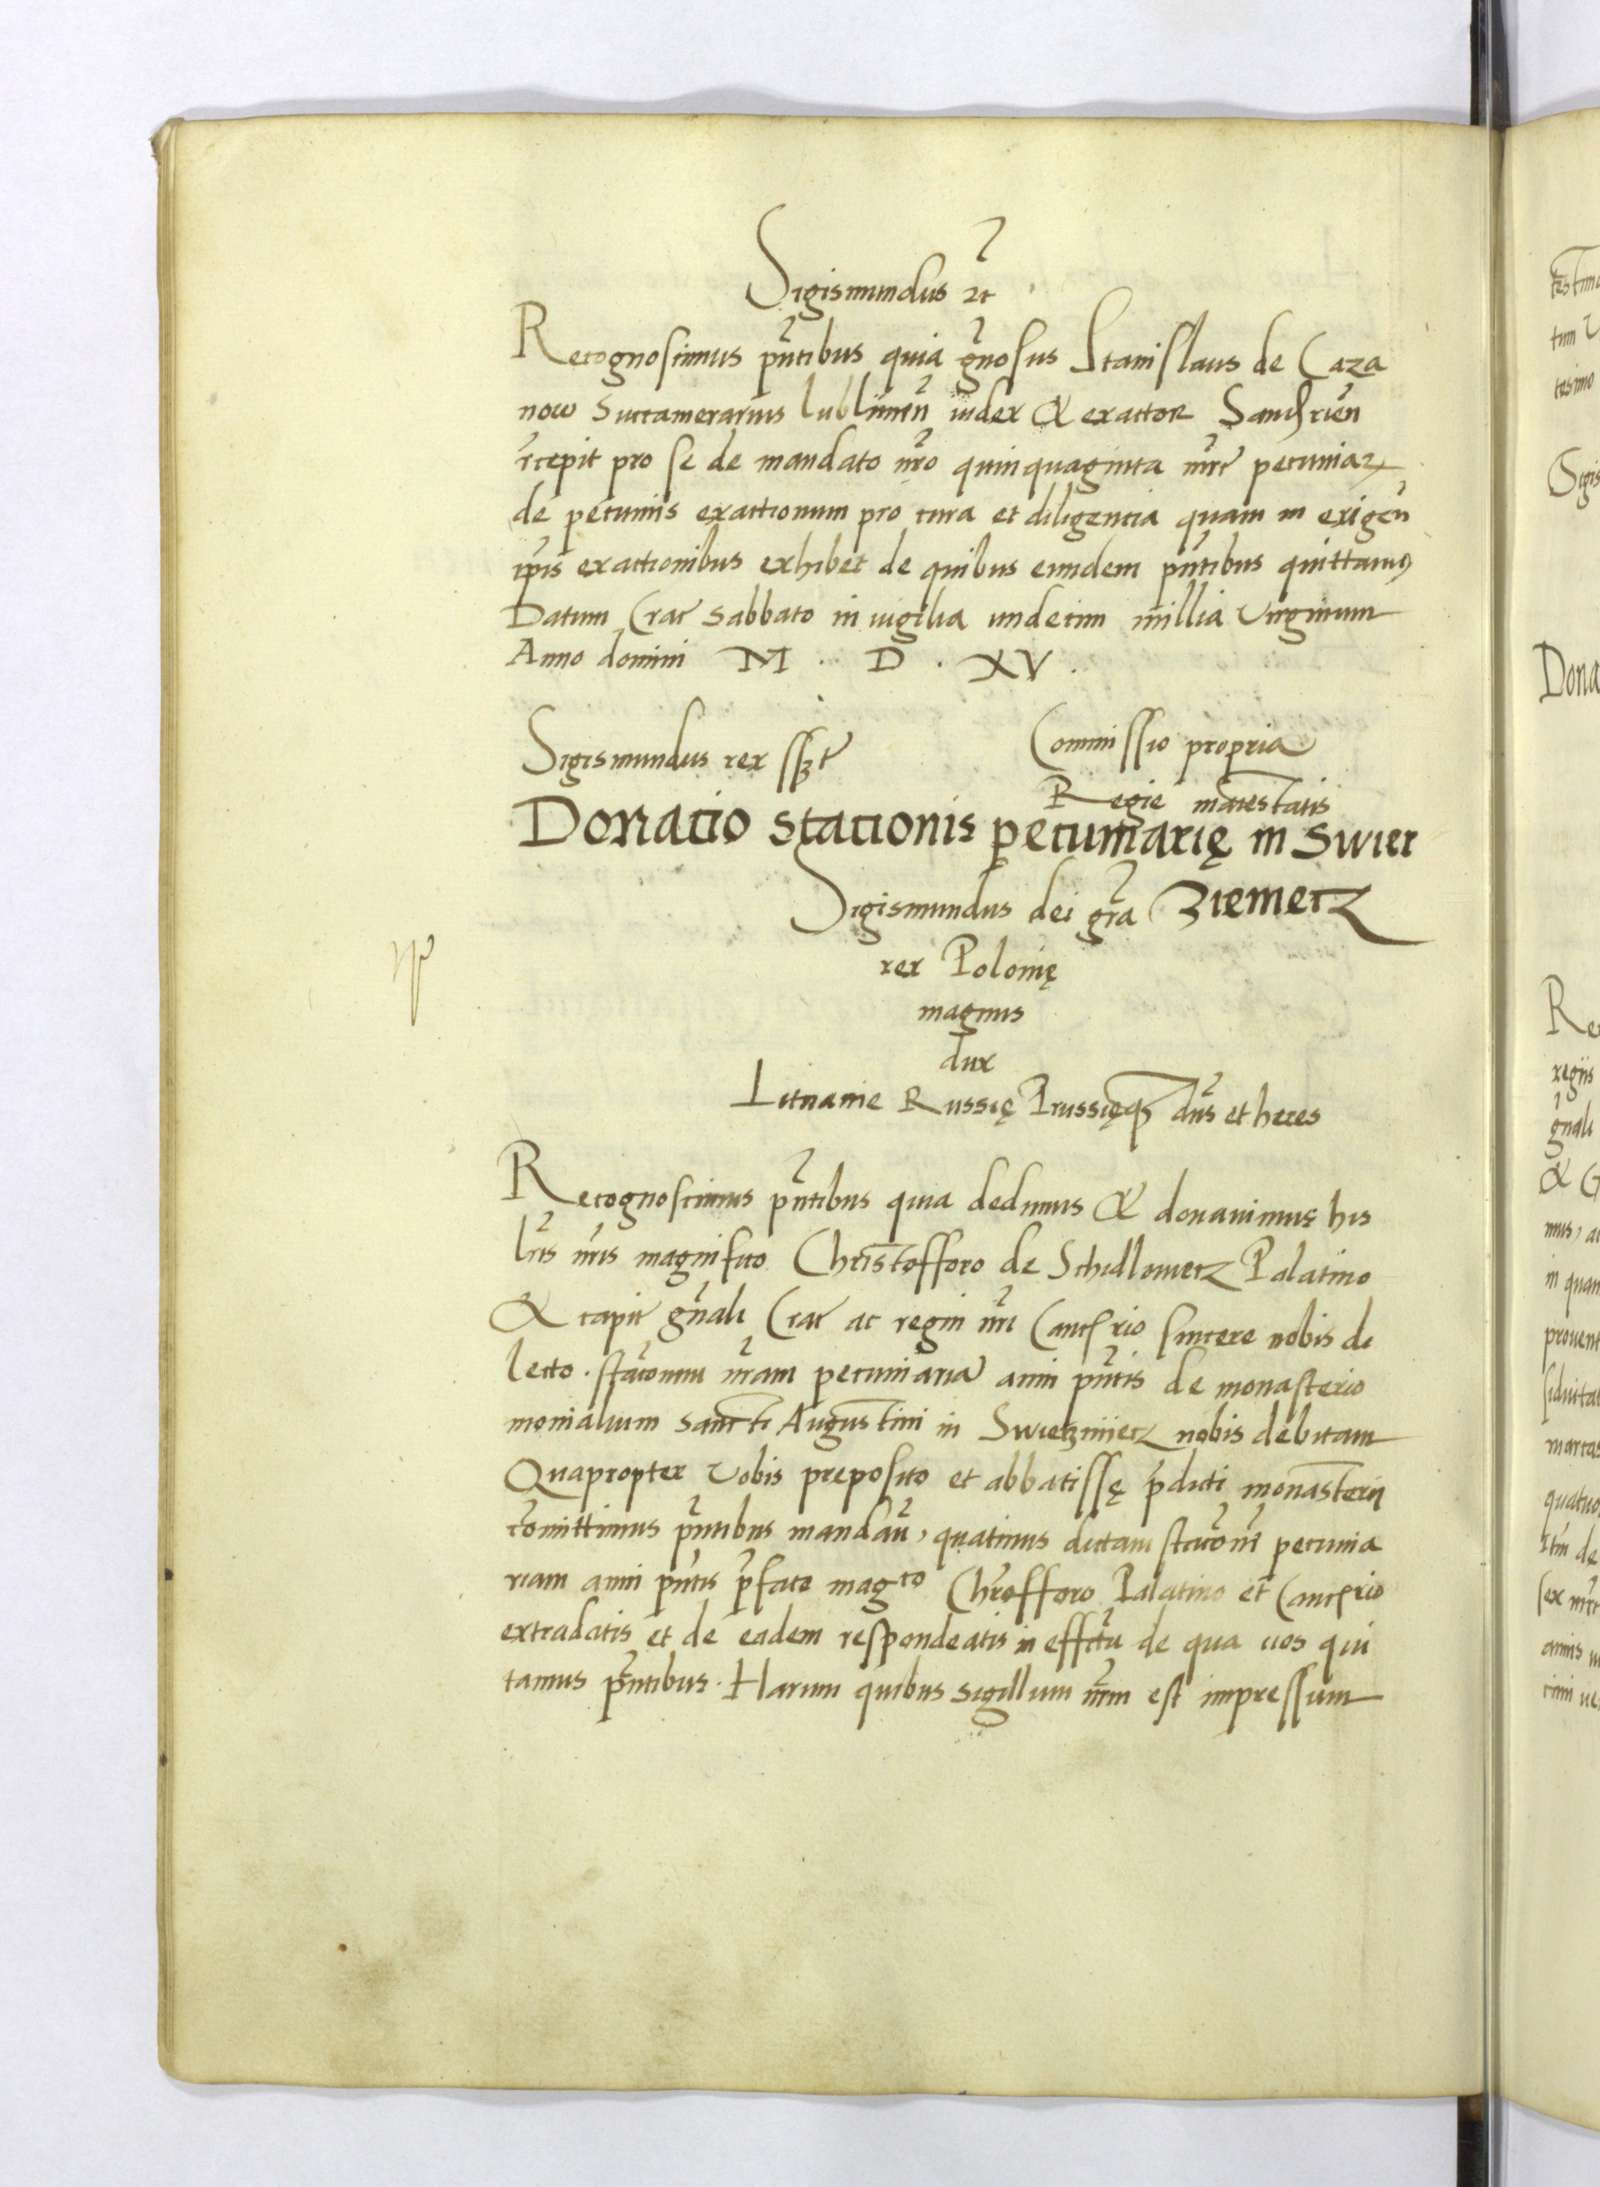 Sigismundus ꝛc
Recognoscimus pñtibus quia gñosus Stanislaus de Caza
now Succamerarius lublinen̄ iudex & exactor Sandrien̄
recepit pro se de mandato nr̄o quinquaginta mrc pecuniaꝝ
de pecuniis exactionum pro cura et diligencia quam in exigen̄
ip̄is exactionibus exhibet de quibus eundem pñtibus quittamꝰ
Datum Crac Sabbato in vigilia undecim millia Virginum
Anno domini M . D . XV .
Sigismundus rex sszt
Commissio propria
Regie maiestatis
Donacio stacionis pecuniarię in Swier
ziemecz
Sigismundus dei gr̄a
rex Polonię
magnus
dux
Lituanie Russię Prussięqꝫ dn̄s et heres
Recognoscimus pñtibus quia dedimus & donavimus his
lr̄is nr̄is magnifico Christofforo de Schidlowecz Palatino
& capit gn̄ali Crac ac regni nr̄i Cancrio sincere nobis di
lecto . stac̄onem nr̄am pecuniaria anni pn̄tis de monasterio
monialium Sancti Augustini in Swierzniecz nobis debitam
Quapropter Vobis preposito et abbatissę p̄dicti monasterii
com̄ittimus pñtibus mandan̄, quatinus dictam stac̄onē pecunia
riam anni pn̄tis p̄fato magco Chr̄offoro Palatino et Cancrio
extradatis et de eadem respondeatis in effc̄tu de qua vos qui
tamus pñtibus . Harum quibus sigillum nr̄m est impressum
testimo
tum
tesimo
Sigis
Dona
Re
regiis
gn̄ali
& G
mus, ac
in quan
provent
marcas
quatuo
Itm de
sex mrc